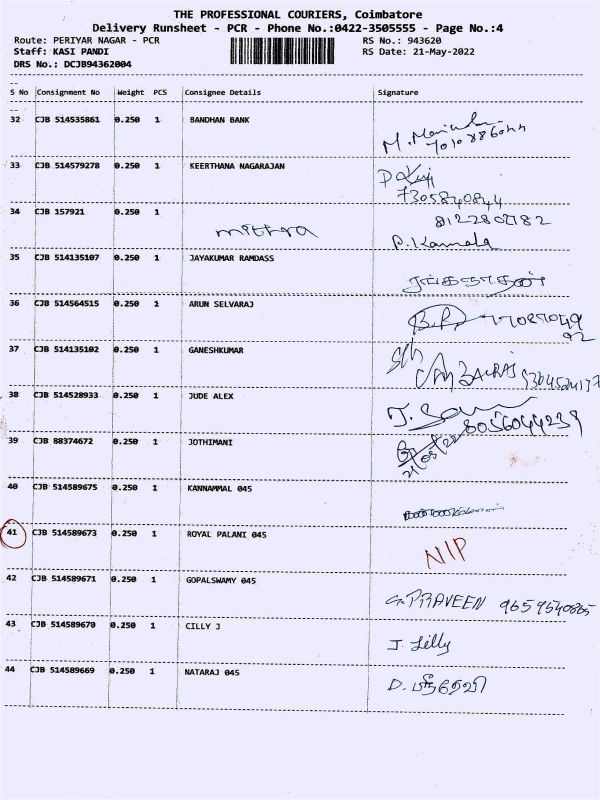 THE PROFESSIONAL COURIERS, Coimbatore
Delivery Runsheet - PCR - Phone No.:0422-3505555 - Page No.:4
Route: PERIYAR NAGAR - PCR RS No.: 943620
Staff: KASI PANDI RS Date: 21-May-2022
DRS No.: DCJB94362004
S No Consignment No Weight PCS Consignee Details Signature
32 CJB 514535861 0.250 1 BANDHAN BANK
33 CJB 514579278 0.250 1 KEERTHANA NAGARAJAN
7305840844
34 CJB 157921 0.250 1
mithra P. Kamala
35 CJB 514135107 0.250 1 JAYAKUMAR RAMDASS
ரங்கநாதன்
36 CJB 514564515 0.250 1 ARUN SELVARAJ
37 CJB 514135102 0.250 1 GANESHKUMAR
38 CJB 514528933 0.250 1 JUDE ALEX
8056044239
39 CJB 88374672 0.250 1 JOTHIMANI
21/05/22
40 CJB 514589675 0.250 1 KANNAMMAL 045
41 CJB 514589673 0.250 1 ROYAL PALANI 045
NIP
42 CJB 514589671 0.250 1 GOPALSWAMY 045
G. PRAVEEN 9659540865
43 CJB 514589670 0.250 1 CILLY J
J. Lilly
44 CJB 514589669 0.250 1 NATARAJ 045
D. ஸ்ரீதேவி